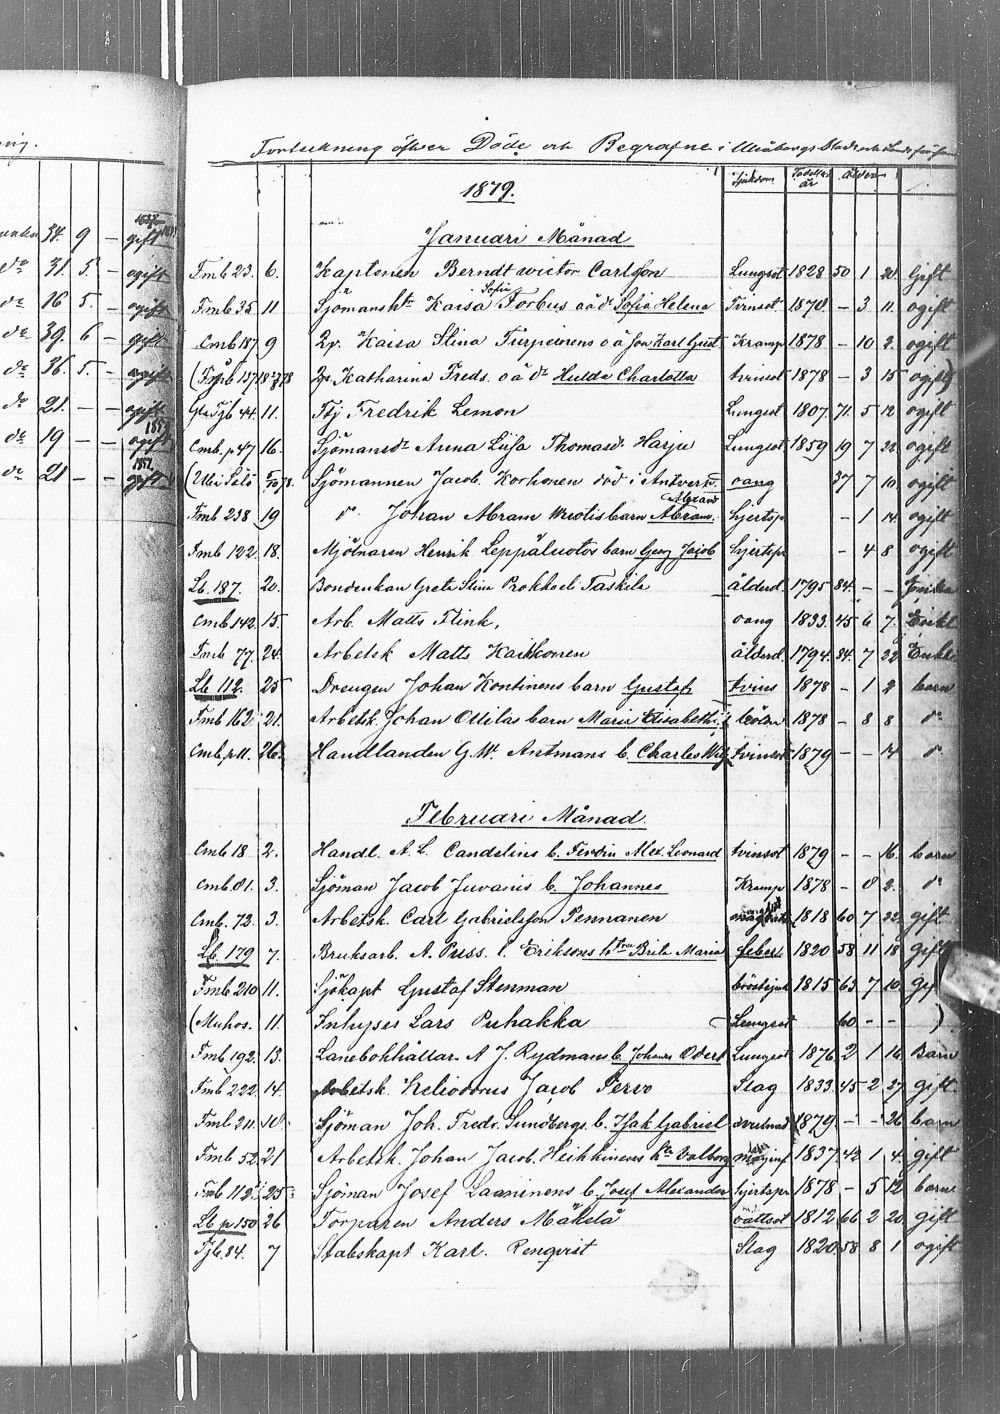 Förteckning öfver Döde och Begrafne i Uleåborgs Stads och Landsförsam
Sjukdom Födelse år ålder
1879.
34. 9 – gift
d:o 31. 5. – ogift
d:o 16 5. – ogift
d:o 39. 6 – gift
d:o 36. 5. – ogift
d:o 21. – – ogift
d:o 19 – – ogift
d:o 21 – – gift
Januari Månad
Fmb 23. 6. Kaptenen Berndt Victor Carlsson Lungsot 1828 50 1 20. Gift
Sofia
Fmb 35 11 Sjömansht. Kaisa Forbus oäd. Sofia Helena Tvinsot 1878 – 3 11. ogift
Cmb 187 9 Qv. Kaisa Stina Turpeinens o ä Son Karl Gust. Kramp 1878 – 10 2. ogift
Qv. Katharina Freds. o ä d:r Hulda Charlotta tvinsot 1878 – 3 15 ogift
Tjb 44. 11. Tbj Fredrik Lemon Lungsot 1807 71. 5 12 ogift
Cmb. p 47 16. Sjömansd:r Anna Lisa Thomasd:r Harju Lungsot 1859 19 7 22 ogift
Sjömannen Jacob Korhonen död i Antverp. oang 37 7 10 ogift
Alexand
Fmb 238 19 d:o Johan Abram Wuotis barn Abram. hjertsp – 1 14. ogift
Fmb 122. 18. Mjölnaren Henrik Leppäluotos barn Georg Jacob hjertsp – 4 8 ogift
Lb. 187. 20. Bondenkan Greta Stina Prokkoch Taskila ålderd 1795 84. – – Enka
Cmb 142. 15. Arb. Matts Flink, oang 1833. 45 6 7. Enkl
Fmb 77. 24. Arbetsk Matts Kaikkonen ålderd 1794. 84. 7 22 Enkl
Lb 112. 25 Drengen Johan Kontinens barn Gustaf tvins 1878 – 1 2 barn
Fmb 162. 21. Arbetsk. Johan Ollilas barn Maria Elisabeth 1878 – 8 8 d:o
Cmb. p 11. 26. Handlanden G. W. Antmans b. Charles Wilh tvinsot 1879 – – 14 d:o
Februari Månad.
Cmb 18 2. Handl. A. L. Candelins b. Ferdin Alex. Leonard tvinsot 1879 – – 16. barn
Cmb 81. 3. Sjöman Jacob Juvanis b. Johannes Kramp 1878 – 8 2. d:o
Cmb. 72. 3. Arbetsk. Carl Gabrielsson Pennanen 1818 60 7 22. gift
Lb. 179 7. Bruksarb. A. Press. l. Eriksons h:tru Brita Maria feber 1820 58 11 18 Gift
Fmb 210 11. Sjökapt Gustaf Stenman bröstsjuk 1815 63 7 10. Gift
(Muhos. 11. Inhyses Lars Puhakka Lungsot 60 – – )
Fmb 192. 13. Lanebokhållar. A. J. Rydmans b. Johannes Odert Lungsot 1876 2 1 16. Barn
Fmb 222. 14. Arbetsk. Heliodorus Jacob Tervo Slag 1833. 45 2 27 gift
Fmb 211. 10. Sjöman Joh. Fredr. Sundbergs b. Isak Gabriel 1879. – – 26 barn
Fmb 52. 21 Arbetsk. Johan Jacob Heikkinens h:u Valborg 1837. 42 1 4. gift
Fmb 112. 25. Sjöman Josef Laaninens b. Josef Alexander hjertspr 1878 – 5 12 barn
Lb p 150 26 Torparen Anders Mäkelä vattsot 1812 66 2 20. gift
Tjb. 84. 7 Stabskapt Karl. Renqvist Slag 1820. 58 8 1 ogift